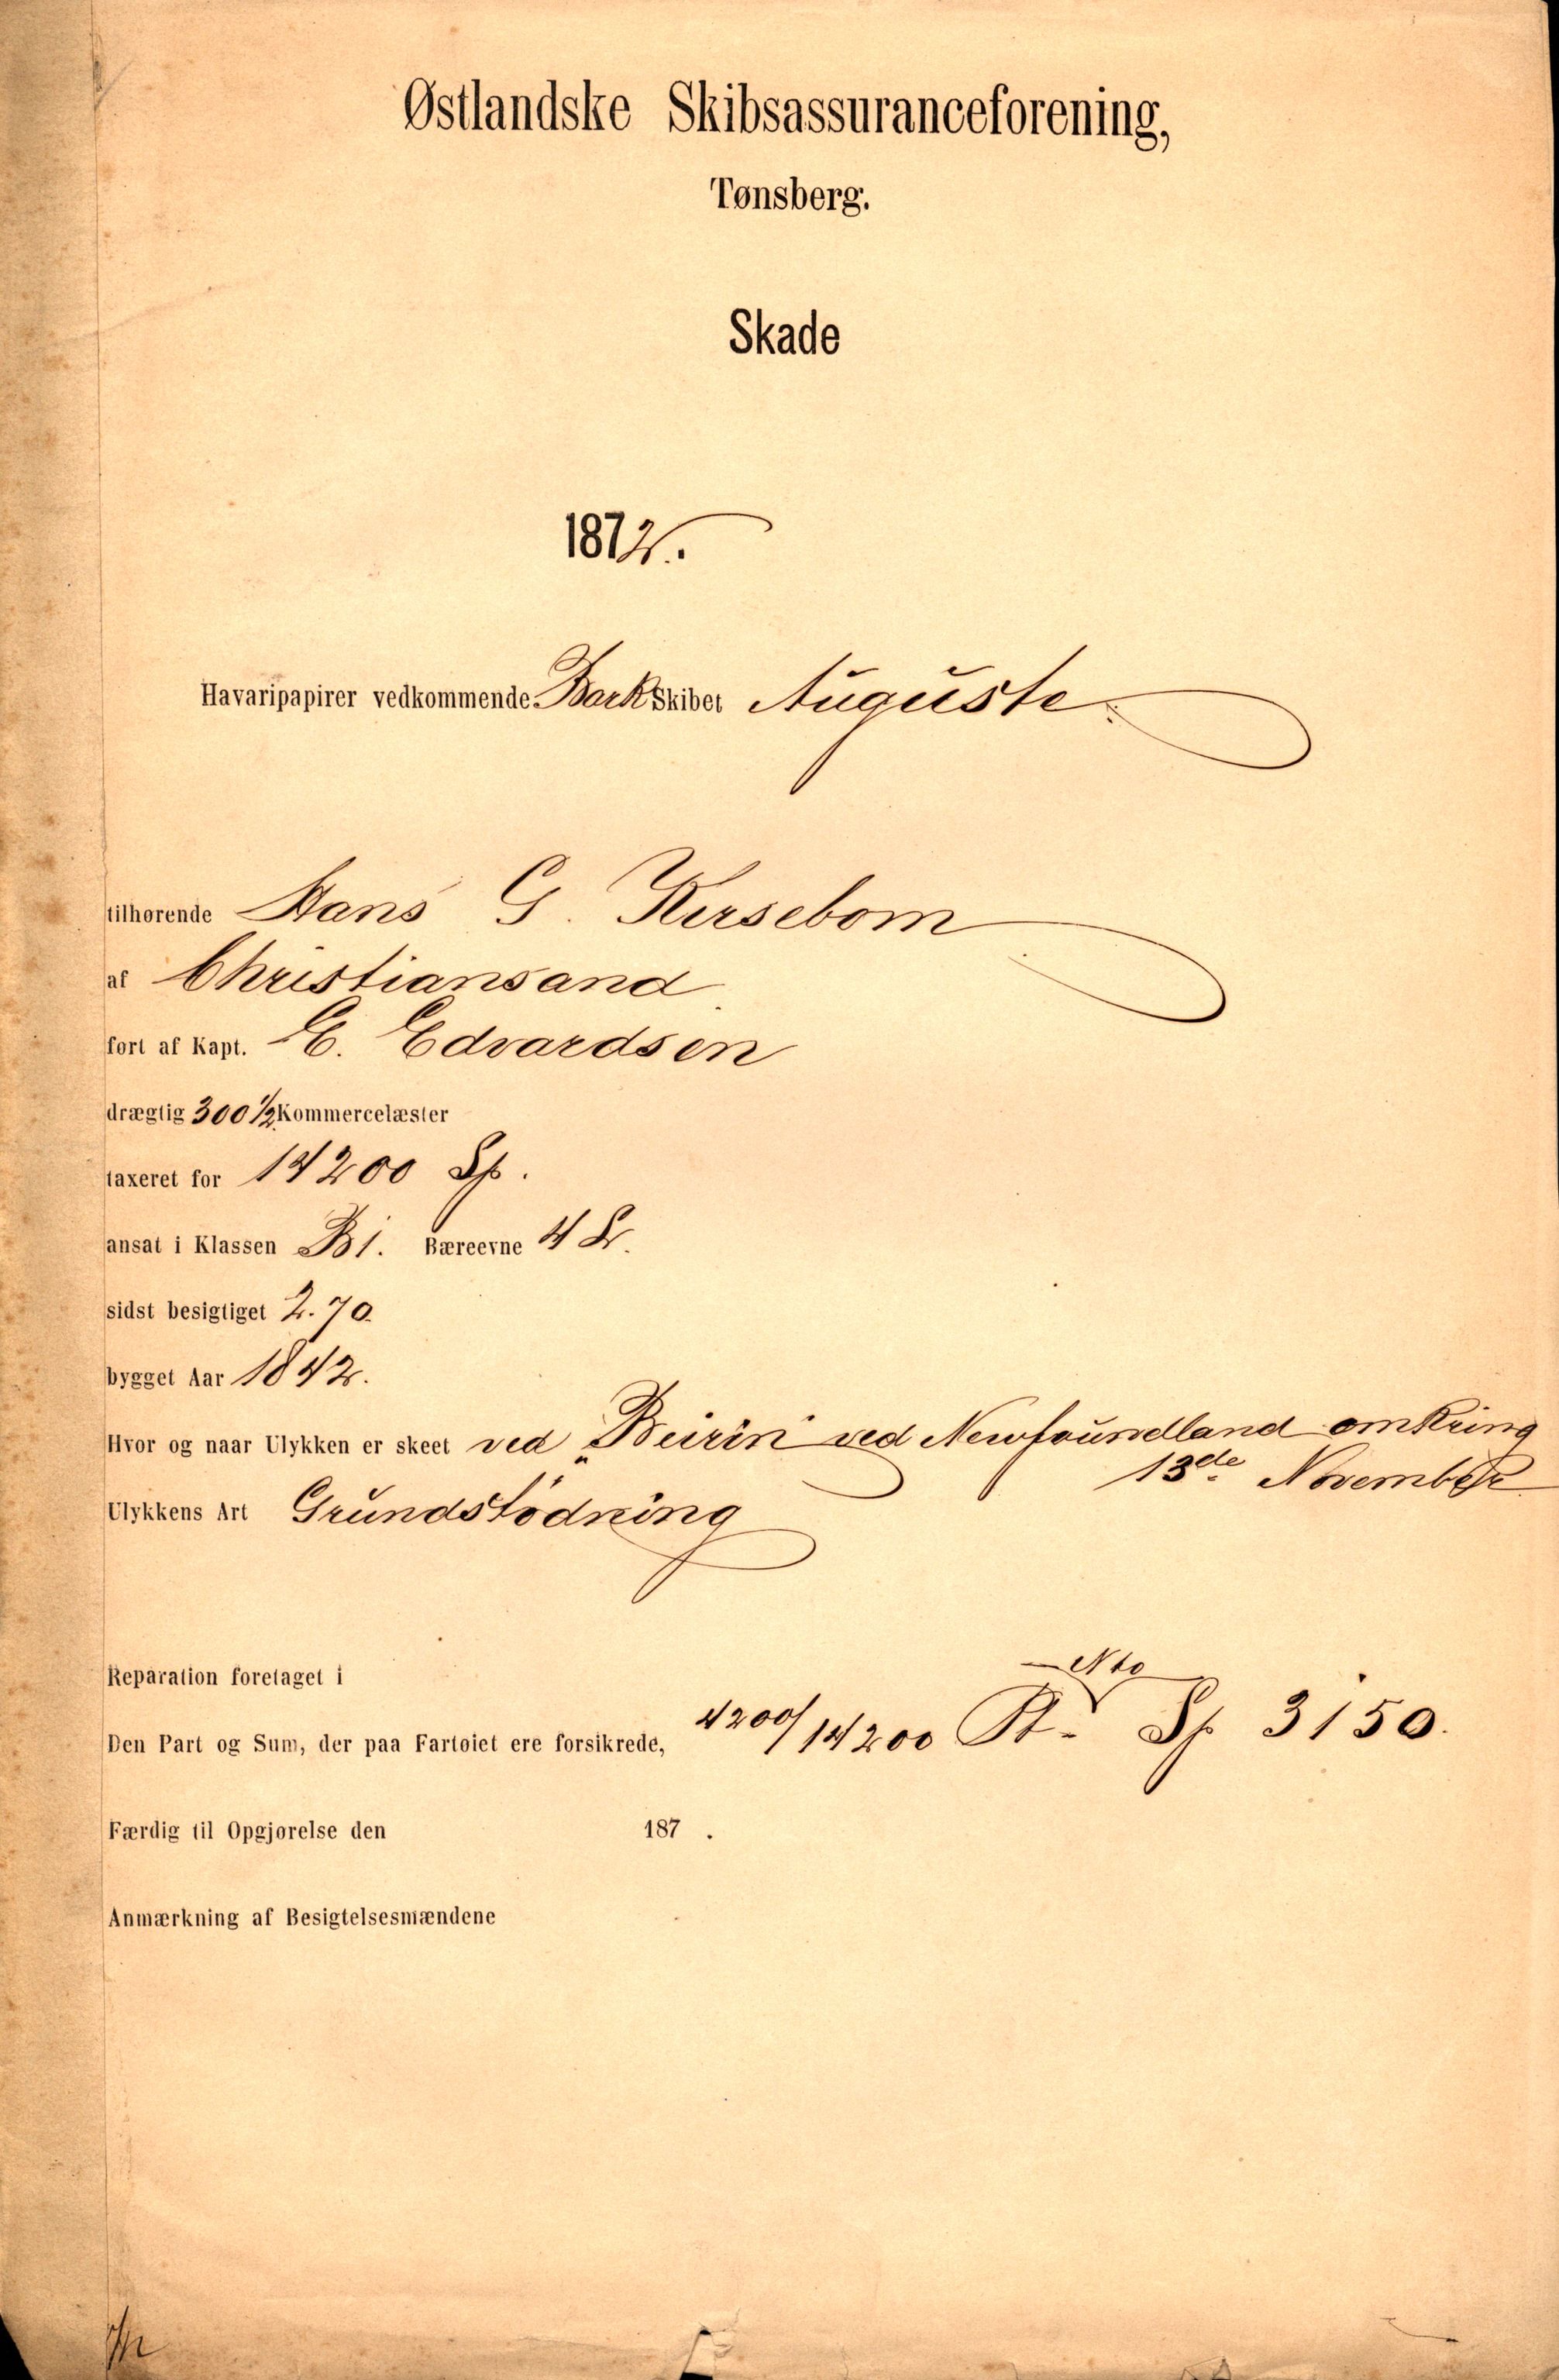 Østlandske Skibsassuranceforening,
Tønsberg.
Skade
1872.
Havaripapirer vedkommende Bark Skibet Auguste
tilhørende Hans G. Kirsebom
af Christiansand
ført af Kapt. E. Edvardsen
drægtig 300 1/2 Kommercelæster
taxeret for 14200 Sp.
ansat i Klassen B1. Bæreevne 4 Sr.
sidst besigtiget 2.70.
bygget Aar 1842.
Hvor og naar Ulykken er skeet ved "Beirin" ved Newfoundland omkring
13de November
Ulykkens Art Grundstödning
Reparation foretaget i
Nto
Den Part og Sum, der paa Fartøiet ere forsikrede, 4200/14200 Pt. Sp 3150.
Færdig til Opgjørelse den 187 .
Anmærkning af Besigtelsesmændene